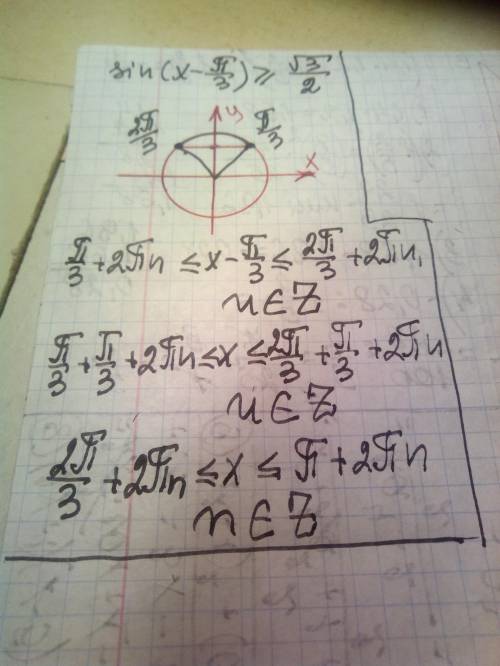 sin(x - π/3) ≥ √3/2
y
2π/3 π/3
x
π/3 + 2πn ≤ x - π/3 ≤ 2π/3 + 2πn,
n ∈ Z
π/3 + π/3 + 2πn ≤ x ≤ 2π/3 + π/3 + 2πn
n ∈ Z
2π/3 + 2πn ≤ x ≤ π + 2πn
n ∈ Z